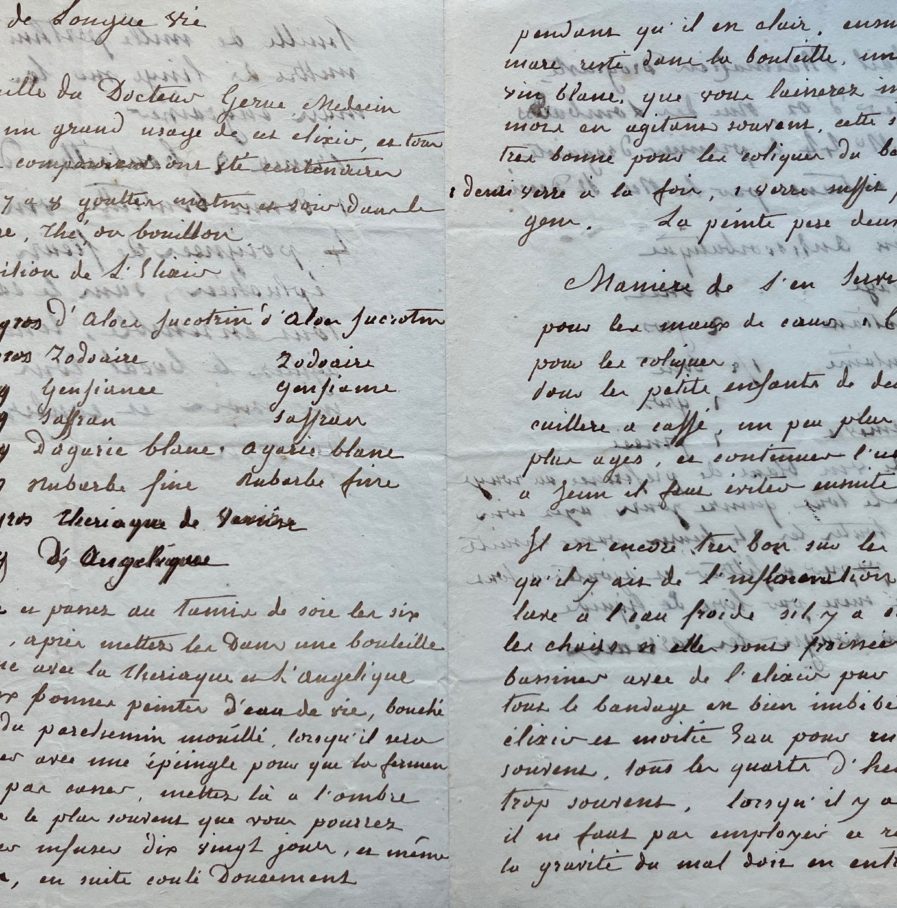 de Longue vie
ille du Docteur Gerue Medecin
un grand usage de cet elixir, et tous
comparaient ont été centenaires
7 a 8 gouttes matin et soir dans le
re, Thé, ou bouillon
ition de L'Elixir
gros d'Aloes sucotrin d'Aloes sucrotin
ros Zodoaire Zodoaire
g Gensianee gensiane
g saffran saffran
g D'agaric blanc. agaric blanc
g Rubarbe fine Rubarbe fine
gros theriaque de Venise
g D'Angelique
et passez au tamis de soie les six
, après mettez les Dans une bouteille
avec la theriaque et L'angelique
ux bonnes peintes d'eau de vie, bouché
du parchemin mouillé, lorsqu'il sera
er avec une épingle pour que la fermen
pas casser, mettez là a l'ombre
le plus souvent que vous pourrez
er infuser dix vingt jours, et même
, en suite coulé Doucement
pendant qu'il est clair, ensui
marc resté dans la bouteille, un
vin blanc, que vous laisserez in
mois en agitant souvent, cette s
tres bonne pour les coliques du ba
1 demi verre a la fois, 1 verre suffit p
gem. La peinte pese deux
Maniere de s'en Serve
pour les maux de cœur 1
pour les coliques
pour les petits enfants de de
cuillere a caffé, un peu plus
plus agés, et continuer l'u
a jeun il faut eviter ensuite
Il est encore tres bon sur les
qu'il y ait de l'inflamation
lave a l'eau froide s'il y a
les chairs si elle sont froissee
bassiner avec de l'elixir pur
tous le bandage est bien imbibé
elixir et moitié Eau pour
souvent, tous les quarts d'heu
trop souvent, lorsqu'il y a
il ne faut pas employer ce r
la gravité du mal doit en ent